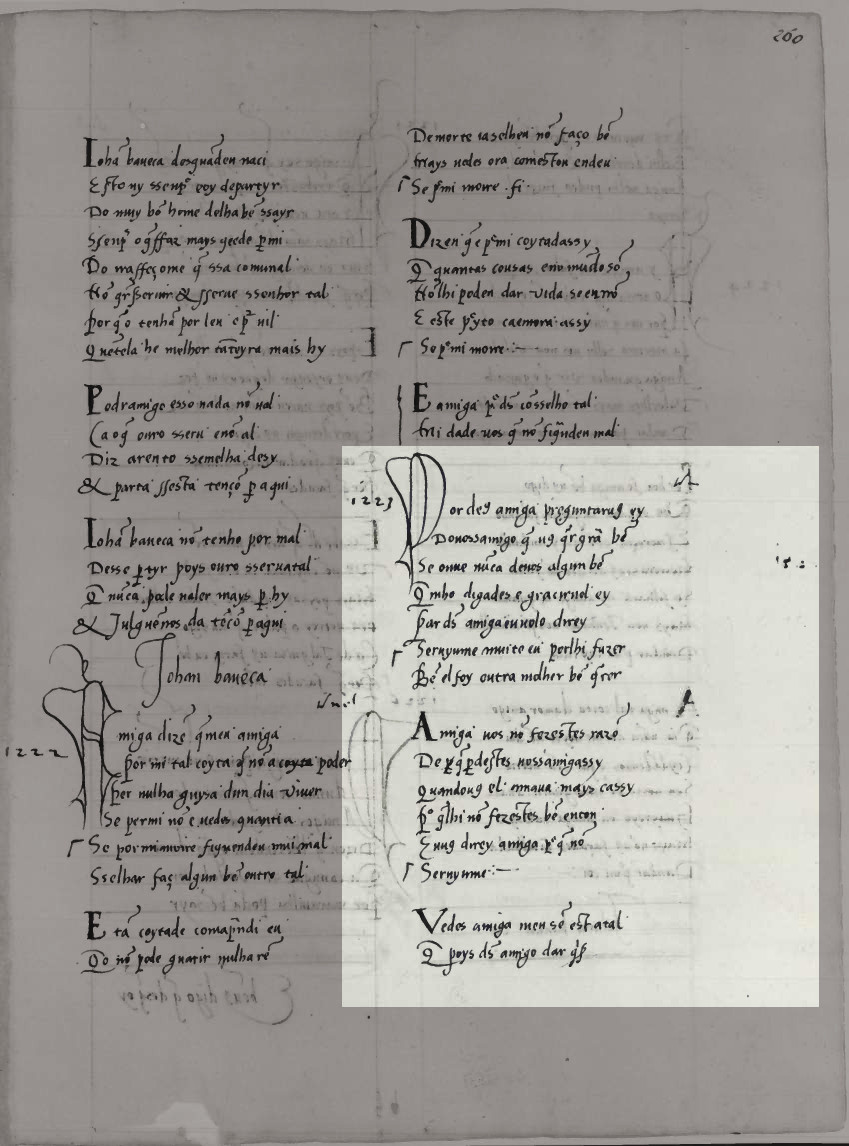 260
Iohã baueca desguadeu naci
E sto ny ssenpͤ voy departyr
Do muy bõ home delha bẽ ssayr
Do mõ
Nõ seruir & sserue ssenhor tal
por q̃ o tenhã por leu e vil
mais hy
Podramigo esso nada nõ ual
Ca o q̃ ouro sseru enõ al
Diz arento ssemelha desy
& parta ssesta tençõ ꝑ aqui
Iohã baueca nõ tenho por mal
Desse ꝑtyr poys ouro sseruatal
Q̃ nũca pode ualer mays ꝑ hy
& Julguẽnos da tẽcõ ꝑ aqui
Johan baueca
1222
Amiga dizẽ q̃ meu amiga
por mi tal coyta q̃ nõ a coyta poder
Per nulha guysa dun dia viuer
Se per mi nõ e uedes quant i a
Se por mi moire fiquendeu mui mal
Sselhar faç algun bẽ outro tal
E tã coytade comap̃ndi eu
Q̃o nõ pode guarir nulha rẽ
De morte iaselheu nõ faço bẽ
mays uedes ora comeston endeu
Se pͤmi moire . fi .
Dizen q̃ e pͤmi coytadassy
Q̃ quantas cousas eno mũdo sõ
Nõ lhi poden dar vida se eu nõ
E este pͤyto caemora assy
Se pͤmi moire :—
E amiga pͬ ds̃ cõsselho tal
mi dade uos q̃ nõ fiq̃nden mal
1223
Por ds̃ amiga preguntarug̃ ey
Douossamigo q̃ uꝯ q̃r grã bẽ
Se ouue nũca deuos algun bẽ
Q̃ mho digades e graciruol ey
Par ds̃ amiga eu uolo direy
Seruyume muite eu porlhi fazer
Bẽ el foy outra molher bẽ q̃rer
Amiga uos nõ fezestes razõ
De q̃ ꝑdestes uossamigassy
Quandouꝯ el amaua mays cassy
Pͬ q̃lhi nõ fezestes bẽ enton
E uuꝯ direy amiga pͬ q̃ nõ
Seruyume :—
Vedes amiga meu sẽ est atal
Q̃ poys ds̃ amigo dar q̃ʳ